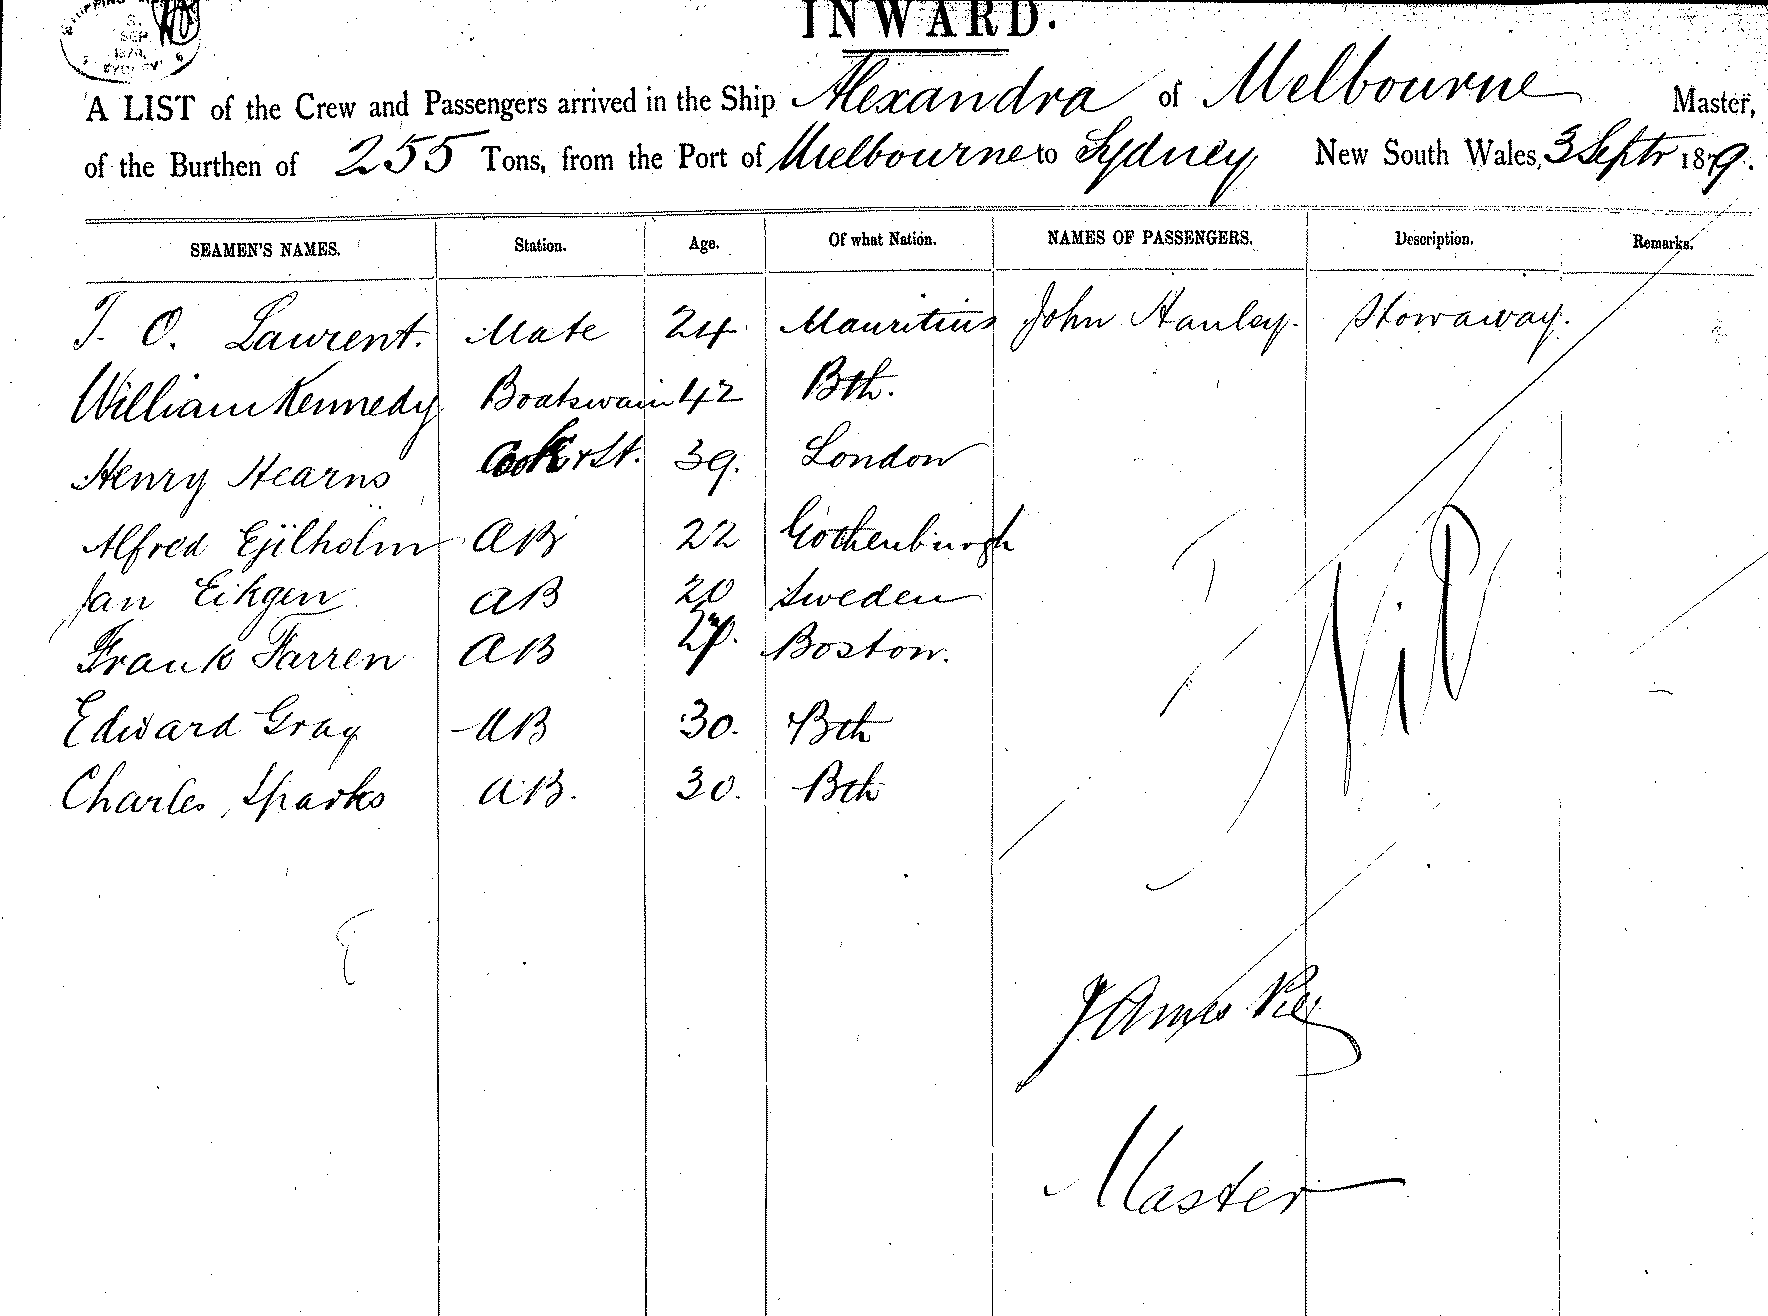 SEP
SYDNEY
INWARD.
A LIST of the Crew and Passengers arrived in the Ship Alexandra of Melbourne Master,
of the Burthen of 255 Tons, from the Port of Melbourne to Sydney New South Wales, 3 Septr 1879.
SEAMEN'S NAMES. Station. Age. Of what Nation. NAMES OF PASSENGERS. Description. Remarks.
J. O. Laurent. Mate 24 Mauritius John Hanley. Stowaway.
William Kennedy Boatswain 42 Bth.
Henry Hearns Cook & St. 39. London
Alfred Ejilholm AB 22 Gothenburgh
Jan Eikgen AB 20 Sweden
Frank Farren AB Boston.
Edward Gray AB 30. Bth
Charles Sparks AB. 30. Bth
Nil
James
Master